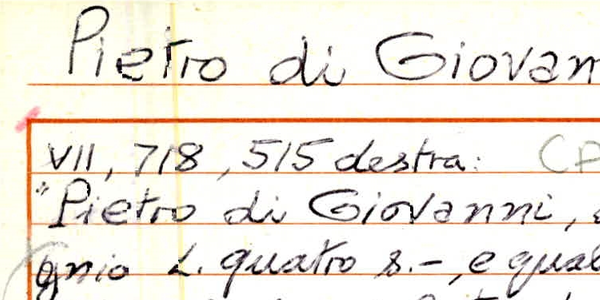 Pietro di Giovan
VII, 718, 515 destra: CP
"Pietro di Giovanni,
gnio L. quatro s.-, e qual